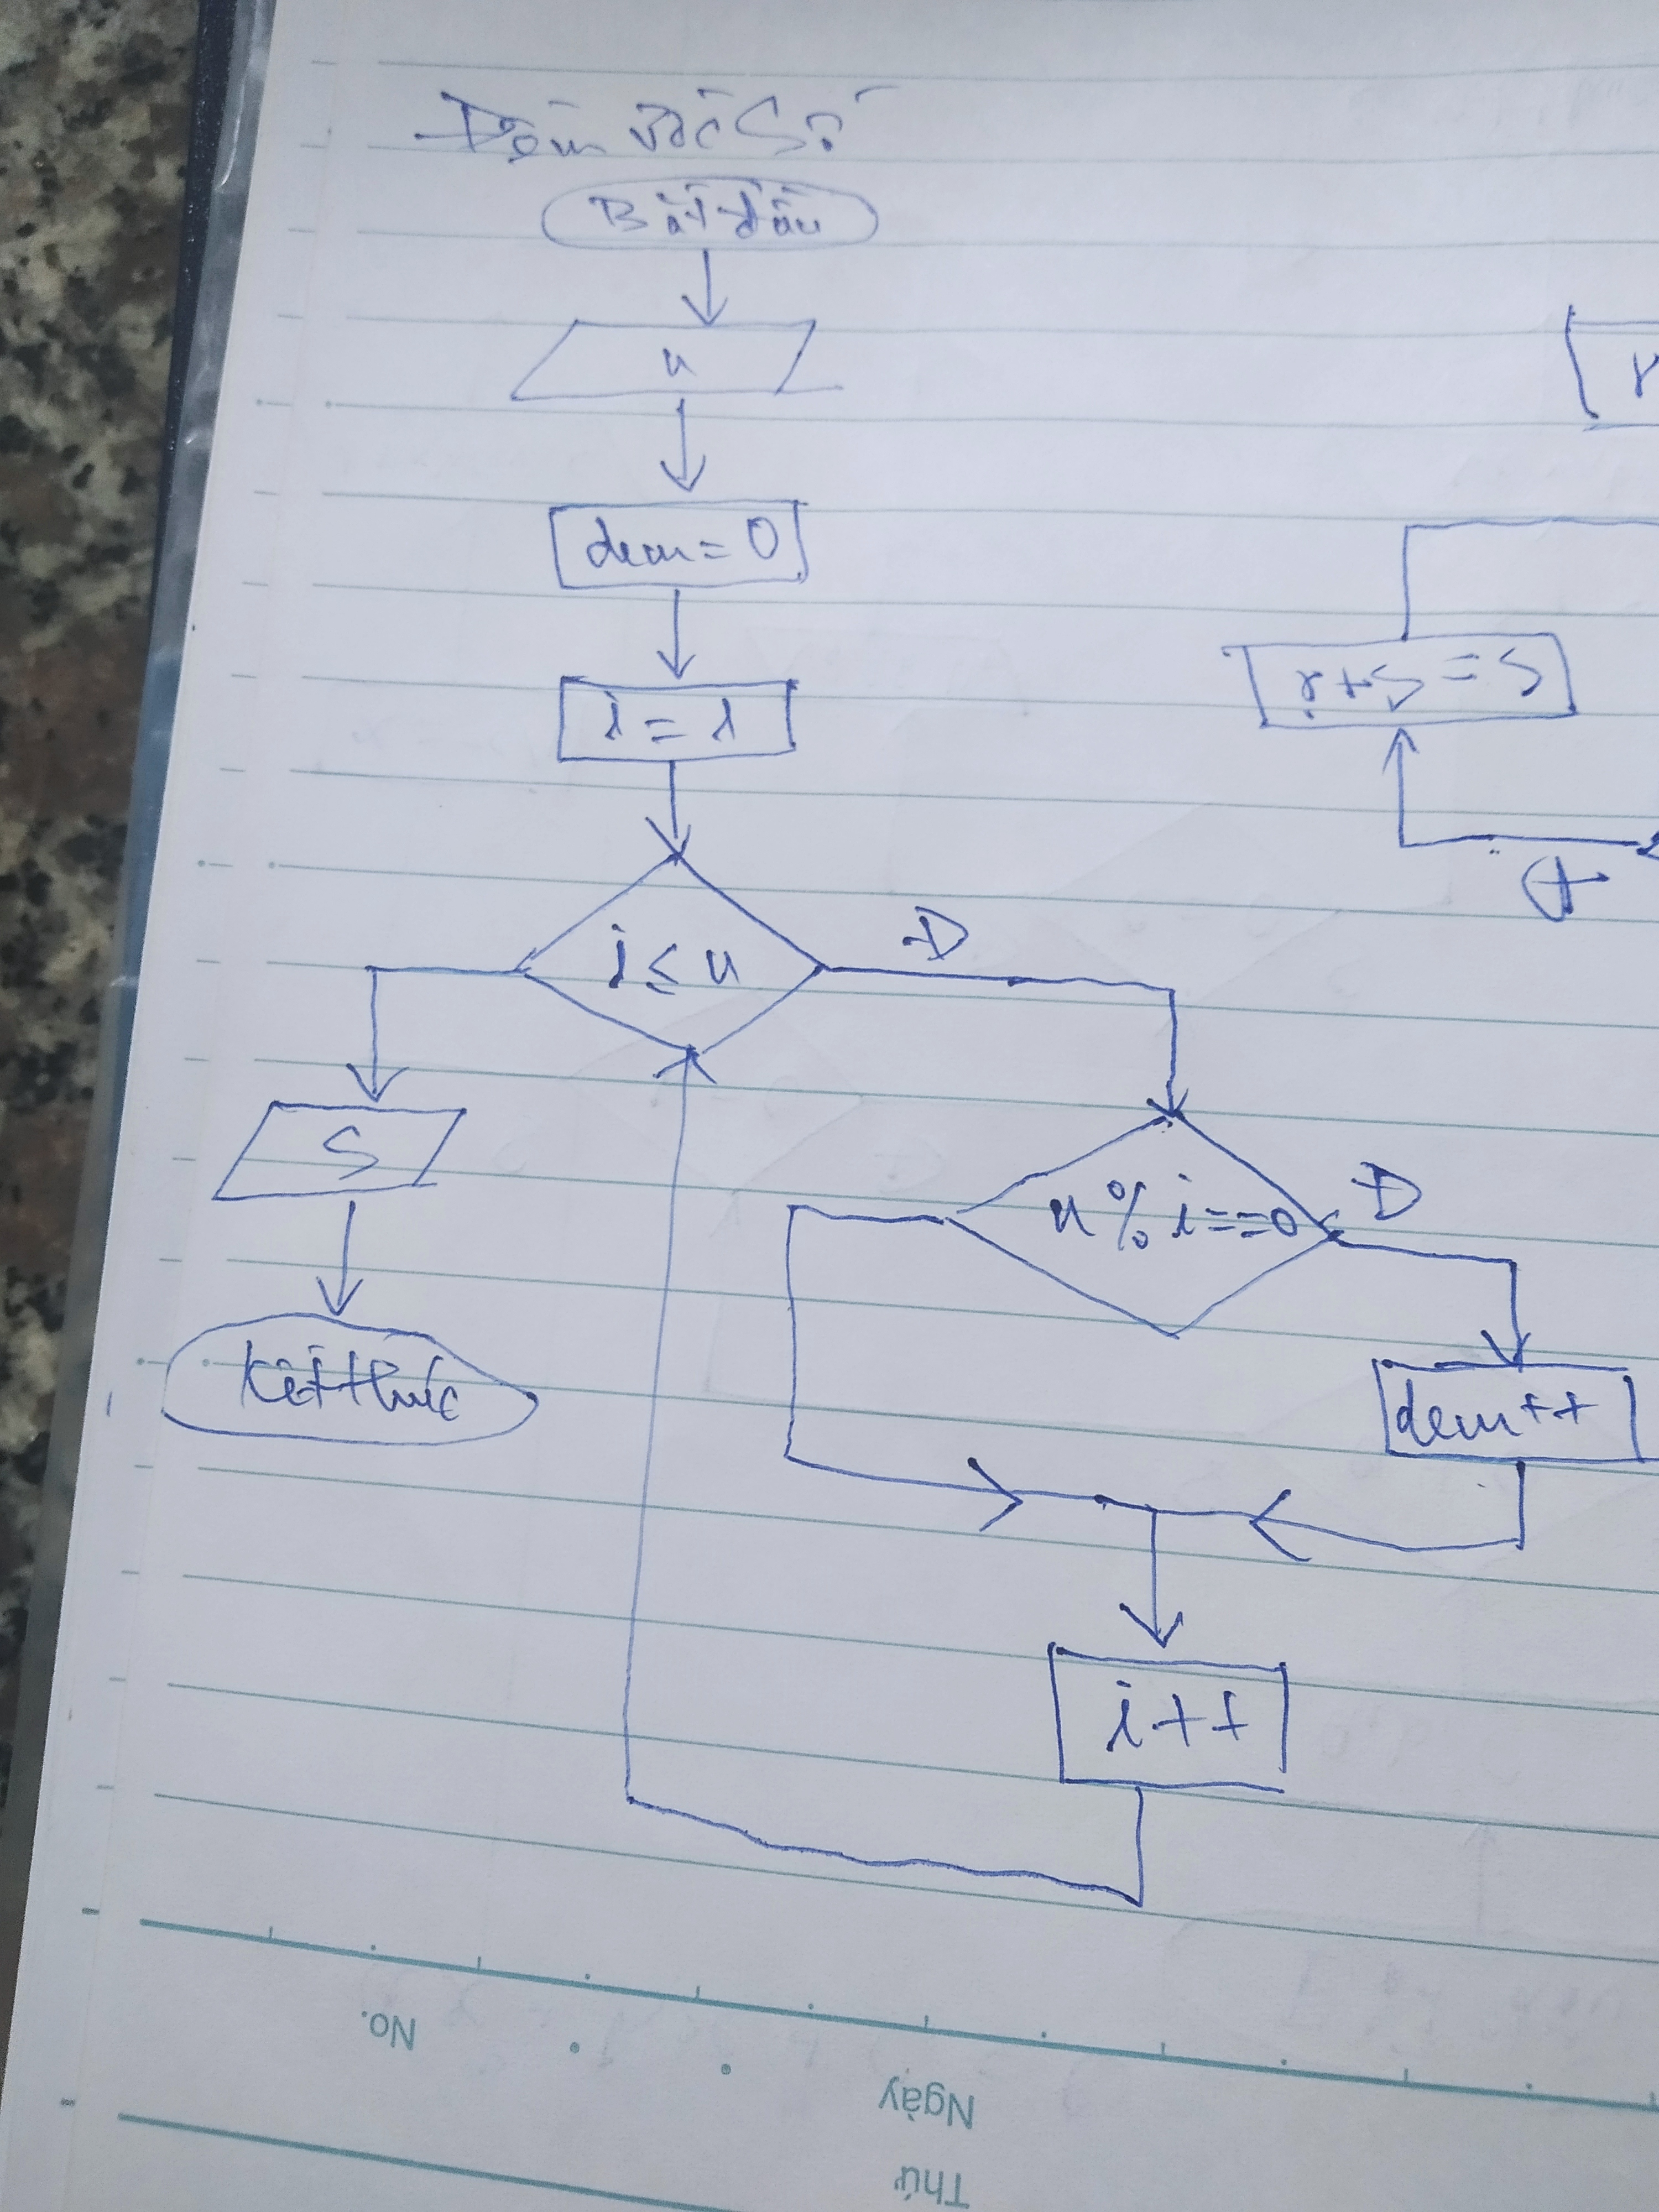 Đếm ước số
Bắt đầu
n
dem = 0
i = 1
i ≤ n
Đ
S
n % i == 0
Đ
Kết thúc
dem++
i++
S = S + r
Đ
r
No.
Ngày
Thứ